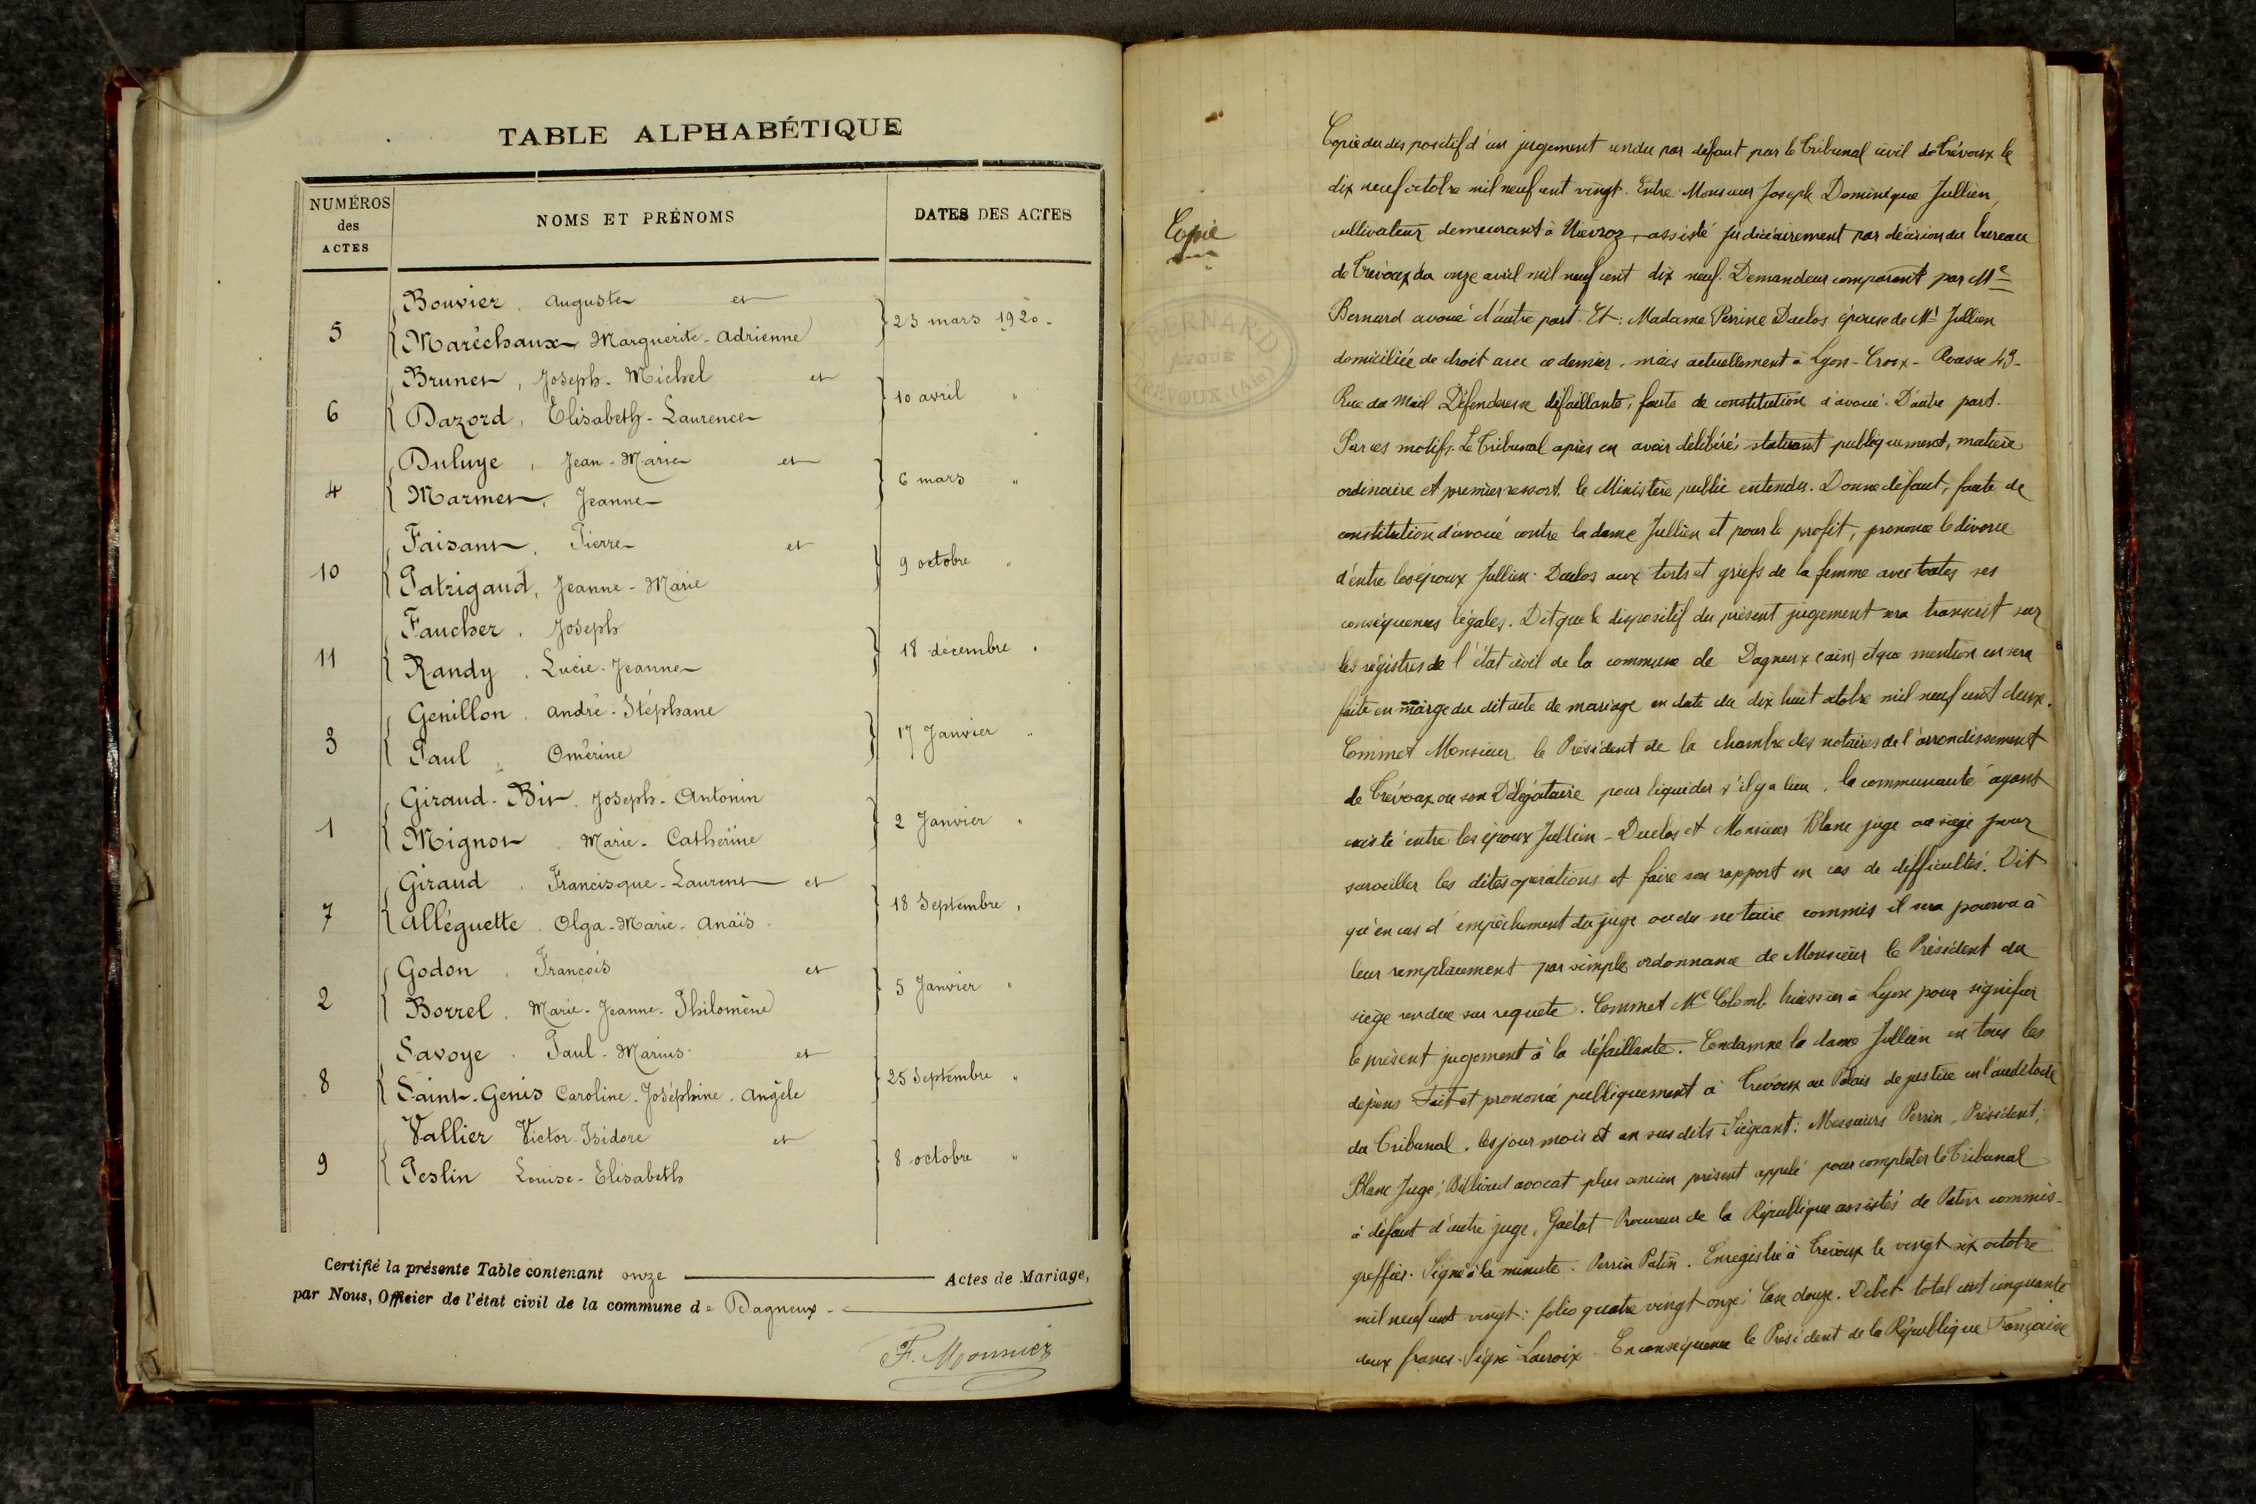 TABLE ALPHABÉTIQUE
NUMÉROS des ACTES
NOMS ET PRÉNOMS
DATES DES ACTES
5
Bouvier, Auguste et
Maréchaux, Marguerite-Adrienne
23 mars 1920.
6
Brunet, Joseph-Michel et
Dazord, Elisabeth-Laurence
10 avril "
4
Duluye, Jean-Marie et
Marmet, Jeanne
6 mars "
10
Faisant, Pierre et
Patrigaud, Jeanne-Marie
9 octobre "
11
Faucher, Joseph
Randy, Lucie-Jeanne
18 décembre "
3
Genillon, André-Stéphane
Paul, Omérine
17 Janvier "
1
Giraud-Bit, Joseph-Antonin
Mignot, Marie-Catherine
2 Janvier "
7
Giraud, Francisque-Laurent et
Alléguette, Olga-Marie-Anaïs
18 Septembre "
2
Godon, François et
Borrel, Marie-Jeanne-Philomène
5 Janvier "
8
Savoye, Paul-Marius et
Saint-Genis Caroline-Joséphine-Angèle
25 Septembre "
9
Vallier Victor-Isidore et
Peslin Louise-Elisabeth
8 octobre "
Certifié la présente Table contenant onze Actes de Mariage,
par Nous, Officier de l'état civil de la commune de Dagneux
F. Monnier
Copie
BERNARD
AVOUÉ
TREVOUX (Ain)
Copie du dispositif d'un jugement rendu par défaut par le Tribunal civil de Trévoux le
dix neuf octobre mil neuf cent vingt. Entre Monsieur Joseph Dominique Jullien,
cultivateur demeurant à Niévroz, assisté judiciairement par décision du bureau
de Trévoux du onze avril mil neuf cent dix neuf. Demandeur comparant par Me
Bernard avoué d'autre part. Et: Madame Perrine Duclos épouse de Mr Jullien
domiciliée de droit avec ce dernier, mais actuellement à Lyon-Croix-Rousse 43-
Rue du Mail Défenderesse défaillante, faute de constitution d'avoué. D'autre part.
Par ces motifs. Le Tribunal après en avoir délibéré, statuant publiquement, matière
ordinaire et premier ressort, le Ministère public entendu. Donne défaut, faute de
constitution d'avoué contre la dame Jullien et pour le profit, prononce le divorce
d'entre les époux Jullien-Duclos aux torts et griefs de la femme avec toutes ses
conséquences légales. Dit que le dispositif du présent jugement sera transcrit sur
les registres de l'état civil de la commune de Dagneux (Ain) et que mention en sera
faite en marge du dit acte de mariage en date du dix huit octobre mil neuf cent deux.
Commet Monsieur le Président de la chambre des notaires de l'arrondissement
de Trévoux ou son Délégataire pour liquider s'il y a lieu, la communauté ayant
existé entre les époux Jullien-Duclos et Monsieur Blanc juge au siège pour
surveiller les dites opérations et faire son rapport en cas de difficultés. Dit
qu'en cas d'empêchement du juge ou du notaire commis il sera pourvu à
leur remplacement par simple ordonnance de Monsieur le Président du
siège rendue sur requête. Commet Me Colomb huissier à Lyon pour signifier
le présent jugement à la défaillante. Condamne la dame Jullien en tous les
dépens Fait et prononcé publiquement à Trévoux au Palais de justice en l'auditoire
du Tribunal, les jour mois et an sus dits Siégeant: Messieurs Perrin, Président;
Blanc Juge; Billioud avocat plus ancien présent appelé pour compléter le Tribunal
à défaut d'autre juge, Procureur de la République assistés de Patin commis-
greffier. Signé à la minute. Perrin Patin. Enregistré à Trévoux le vingt six octobre
mil neuf cent vingt: folio quatre vingt onze; Case douze. Debet total cent cinquante
deux francs. Signé Lacroix. En conséquence le Président de la République Française